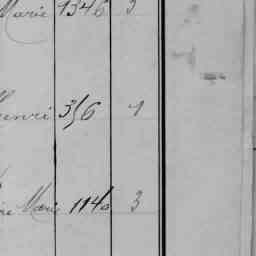 Marie 1346 3
Henri 356 1
Marie 1140 3